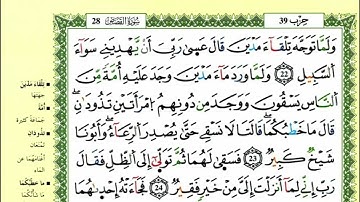 حزب 39
سُورَةُ القَصَصِ 28
وَلَمَّا تَوَجَّهَ تِلْقَآءَ مَدْيَنَ قَالَ عَسَىٰ رَبِّيَ أَنْ يَّهْدِيَنِي سَوَآءَ
اَ۬لسَّبِيلِ 22 وَلَمَّا وَرَدَ مَآءَ مَدْيَنَ وَجَدَ عَلَيْهِ أُمَّةً مِّنَ
اَ۬لنَّاسِ يَسْقُونَ وَوَجَدَ مِن دُونِهِمُ اُ۪مْرَأَتَيْنِ تَذُودَانِ
قَالَ مَا خَطْبُكُمَا قَالَتَا لَا نَسْقِي حَتَّىٰ يُصْدِرَ اَ۬لرِّعَآءُ وَأَبُونَا
شَيْخٌ كَبِيرٌ 23 فَسَقَىٰ لَهُمَا ثُمَّ تَوَلَّىٰ إِلَى اَ۬لظِّلِّ فَقَالَ
رَبِّ إِنِّي لِمَآ أَنزَلْتَ إِلَيَّ مِنْ خَيْرٍ فَقِيرٌ 24 فَجَآءَتْهُ إِحْدَىٰهُمَا
تِلْقَاءَ مَدْيَنَ
جهتها
أُمَّةً
جماعة كثيرة
تَذُودَانِ
تمنعان
أغنامهما عن
الماء
مَا خَطْبُكُمَا
ما شأنكما